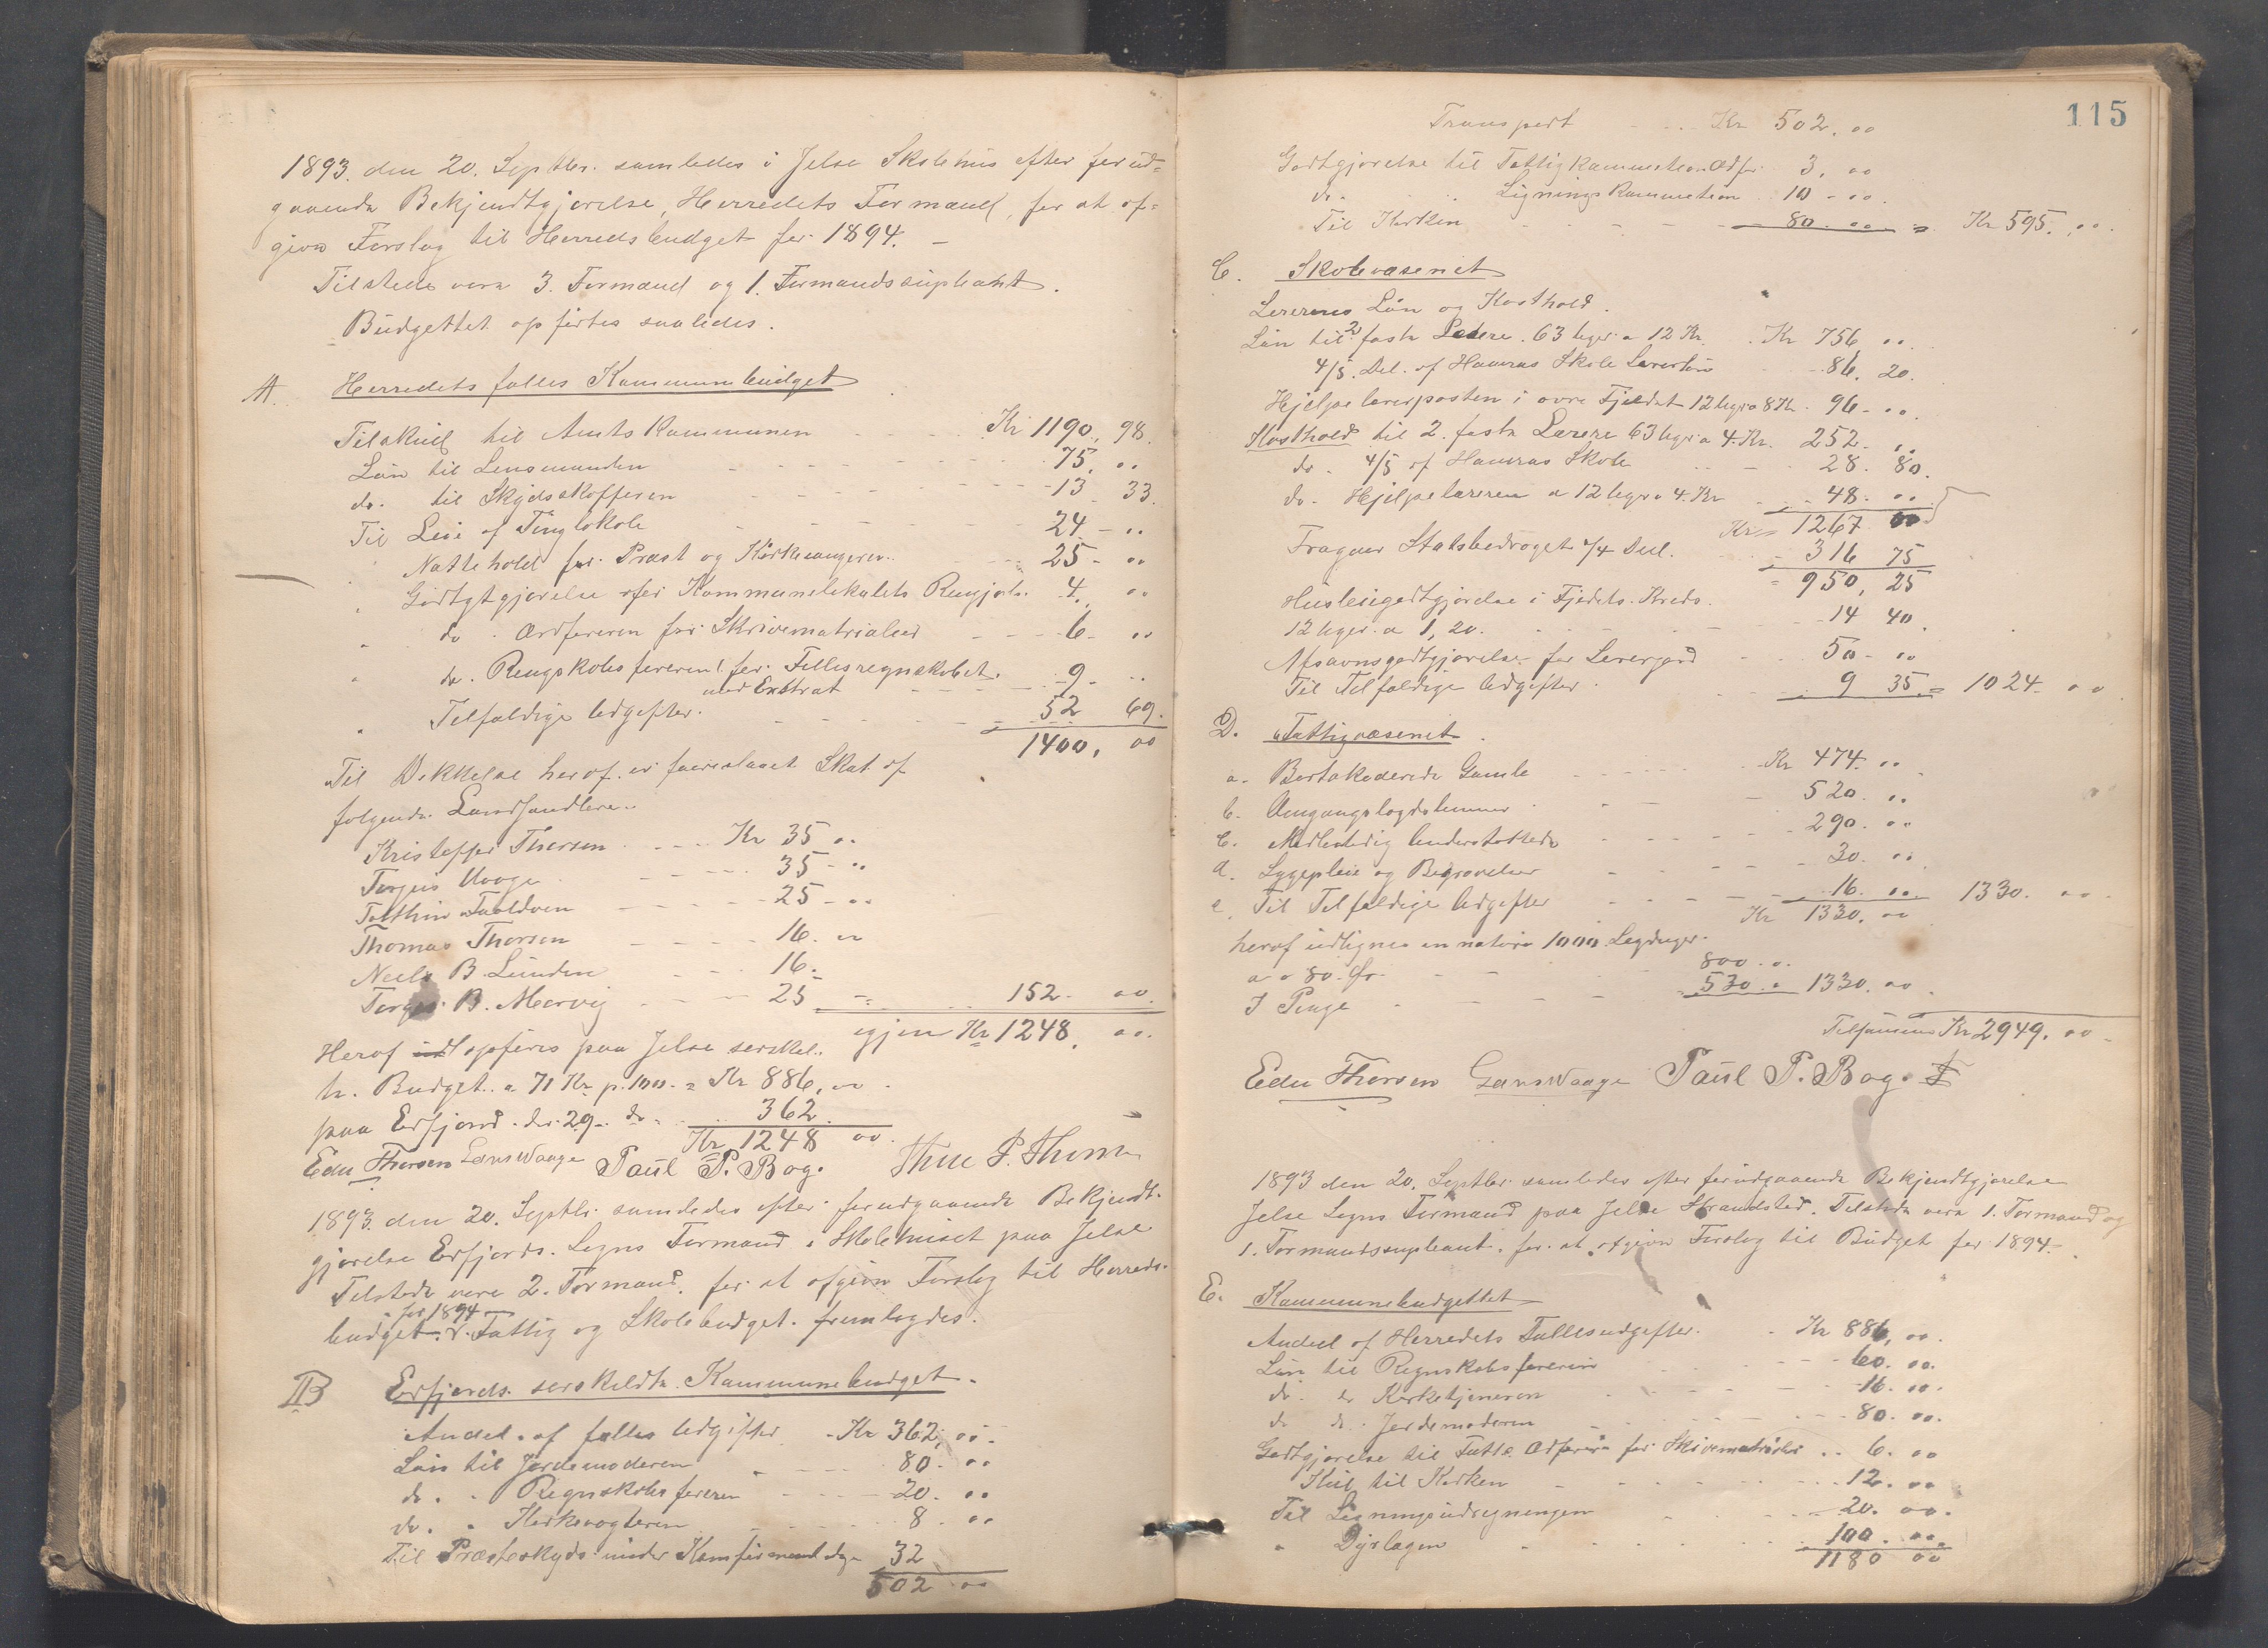 1893. den 20. Septbr. samledes i Jelse Skolehus efter forud-
gaaende Bekjendtgjørelse, Herredets Formænd, for at af-
give Forslag til Herredsbudget for 1894. –
Tilstede vare 3. Formænd og 1. Formandssupleant.
Budgettet opførtes saaledes.
A. Herredets fælles Kommunebudget
Tilskud til Amtskommunen Kr 1190, 98.
Løn til Lensmanden 75, 00
do. til Skydsskafferen 13 33.
Til Leie af Tinglokale 24 – 00
" Nattehold for Præst og Kirkesangeren 25 – 00
" Godtgjørelse for Kommunelokalets Rengjør. 4. 00
" do. Ordføreren for Skrivematrialier 6 – 00
" do. Rengskabsføreren for Fællesregnskabet. 9 – 00
med Exstrat
" Tilfældige Udgifter. 52 69.
1400, 00
Til Dekkelse heraf er foreslaaet Skat af
følgende Landhandlere..
Kristoffer Thorsen Kr 35 00
Torgeis Vaage 35 – 00
25 – 00
Thomas Thorsen 16. 00
Neels B. Lunden 16. –
Torges B. Marvig 25 – = 152 – 00.
igjen Kr 1248, 00.
Heraf opføres paa Jelse serskel.
te. Budget. a 71 Kr p. 100 = Kr 886, 00.
paa Erfjord. do. 29 – do – 362.
Kr 1248 00.
Edu Thorsen Lars Waage Paul P. Bog. Thore P. Thorsen
1893. den 20. Septbr. samledes efter forudgaaende Bekjendt-
gjørelse Erfjords. Sogns Formænd i Skolehuset paa Jelse
Tilstede vare 2. Formænd, for at afgive Forslag til Herreds-
for 1894
budget. Fattig og Skolebudget. fremlagdes.
B Erfjords. serskeldte Kommunebudget.
Andel af fælles Udgifter Kr 362, 00 –
Løn til Jordemoderen 80. 00
do. " Regnskabsføreren 20. 00
do. " Kirkevogteren 8. 00
Til Præsteskyds under 32
502 00
115
Transport Kr 502. 00
Godtgjørelse til Fattigkommissionordfør. 3, 00
do. Ligningskommission 10 – 00.
Til Kirken 80. 00 = Kr 595. 00.
C. Skolevæsenet
Lærernes Løn og Kosthold.
Løn til 2 faste Lærere. 63 Uger a 12 Kr. Kr 756, 00.
4/5. Del. af Hamras Skole Lærerløn 86, 20.
Hjelpelærerposten i øvre Fjeldet 12 Uger a 8 Kr. 96 – 00.
Kosthold til 2. faste Lærere 63 Uger a 4. Kr. 252 – 00
do. 4/5 af Hamras Skole 28. 80.
do. Hjelpelæreren a 12 Uger a 4. Kr 48. 00
Kr 1267 00
Fragaar Statsbedraget 1/4 Deel. 316 75
950, 25
Husleiegodtgjørelse i Fjeldets. Kreds.
12 Uger. a 1,20. 14 40.
Afsavnsgodtgjørelse for Lærerjord 50 – 00
Til Tilfældige Udgifter. 9 35. = 1024. 00
D. Fattigvæsenet.
a. Bortakorderede Gamle Kr 474. 00
b. Omgangslægdslemmer 520. 00
c. Midlertidig Understøttede 290. 00
d. Sygepleie og Begravelser 30. 00
e. Til Tilfældige Udgifter 16. 00 1330. 00
Kr 1330, 00
heraf udlignes en natura 1000 Legdager.
a 80 Ør. 800 . 0.
I Penge 530 . 0 1330. 00.
Tilsammen Kr 2949. 00
Edu Thorsen Lars Waage Paul P. Bog.
1893 den 20. Septbr. samledes efter forudgaaende Bekjendtgjørelse
Jelse Sogns Formænd paa Jelse Strandsted. Tilstede vare 1. Formand og
1. Formandssupleant. for at afgive Forslag til Budget for 1894.–
E. Kommunebudgettet
Andeel af Herredets Fællesudgifter. Kr 886, 00.
Løn til Regnskabsføreren 60. 00.
do. do. Kirketjeneren 16. 00.
do do. Jordemoderen 80. 00.
Godtgjørelse til Ordfører for Skivematrialer 6. 00
Kul til Kirken 12. 00
Til Ligningsudregningen 20. 00.
" 100. 00.
1180 00